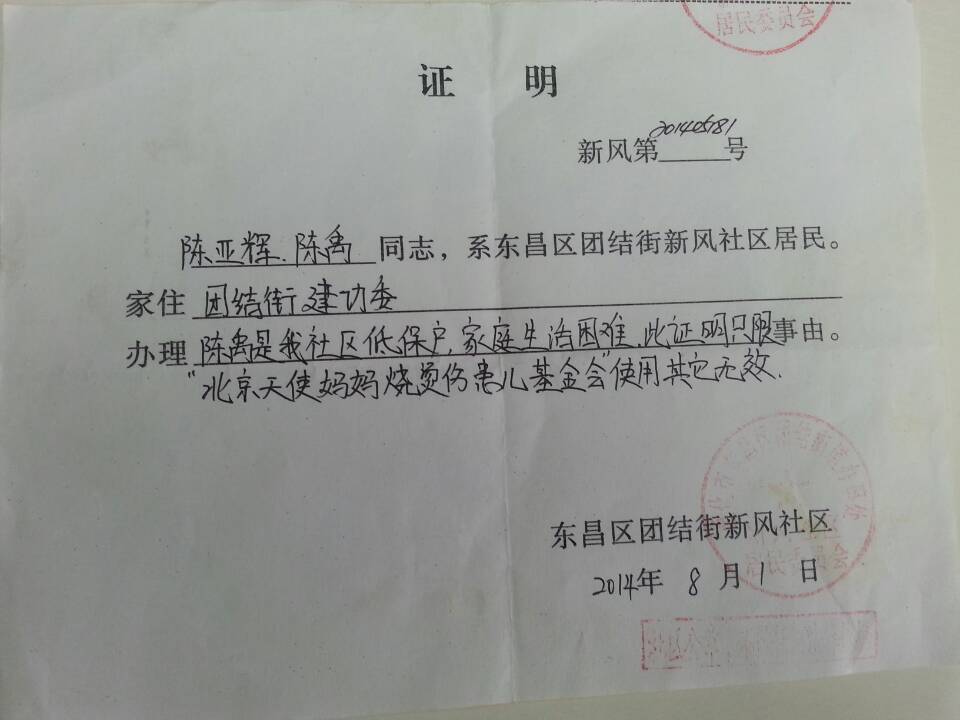 居民委员会
证 明
新风第201405181号
陈亚辉.陈禹 同志，系东昌区团结街新风社区居民。
家住 团结街建功委
办理 陈禹是我社区低保户,家庭生活困难.此证明只限事由。
"北京天使妈妈烧烫伤患儿基金会"使用其它无效.
东昌区团结街新风社区
居民委员会
2014年 8 月 1 日